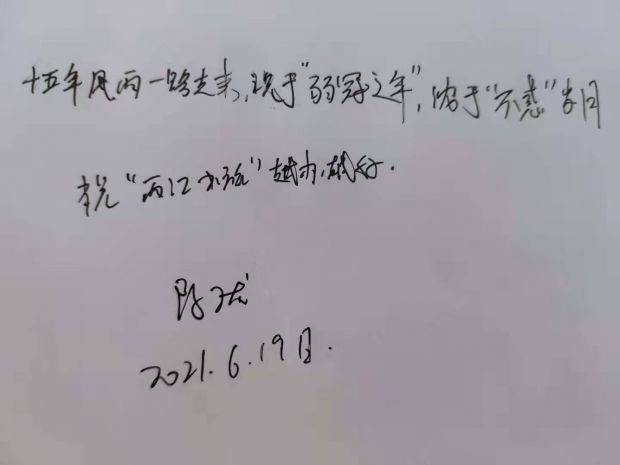 十五年风雨一路走来,现于"弱冠之年",浓于"不惑"岁月
祝"两江水院"越办越好.
陈
2021.6.19日.